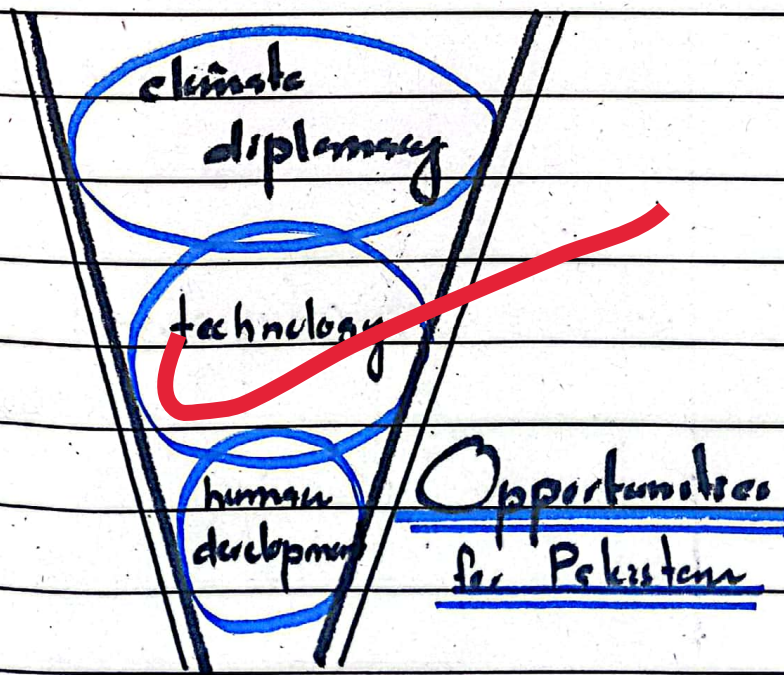 climate
diplomacy
technology
human
development
Opportunities
for Pakistan